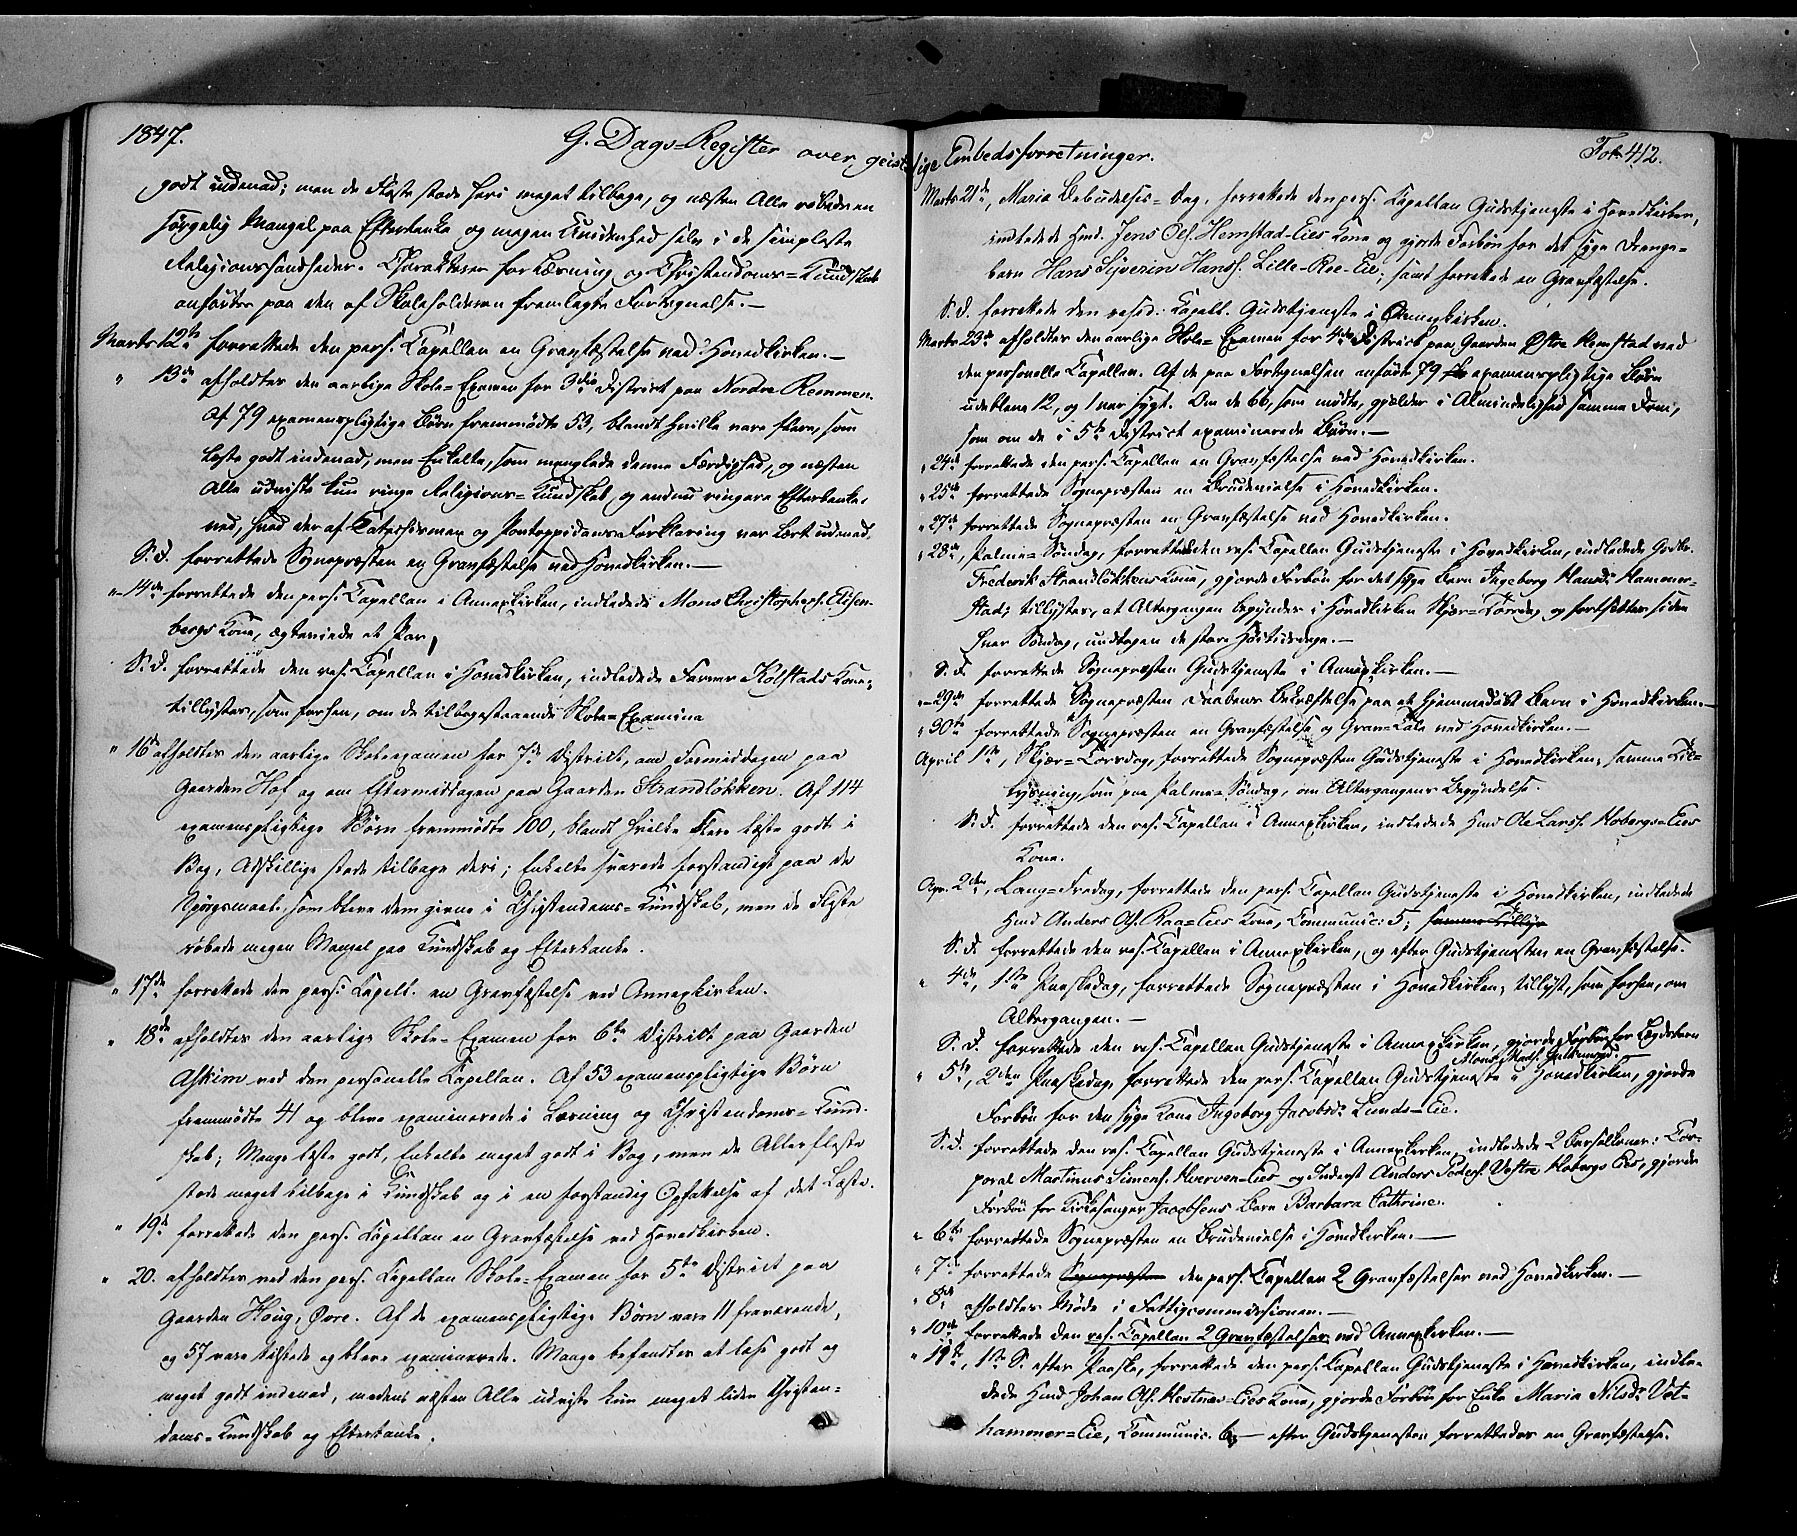 1847.
G. Dags=Register over geistlige Embedsforretninger.
Fol. 412.
godt indenad; men de Fleste stode heri meget tilbage, og næsten Alle røbede en
sørgelig Mangel paa Eftertanke og megen Uvidenhed selv i de simpleste
Religionssandheder. Charakterer for Læsning og Christendoms=Kundskab
anførtes paa den af Skoleholderen fremlagte Fortegnelse.—
Marts 12te forrettede den pers. Capellan en Gravfæstelse ved Hovedkirken.—
" 13de afholdtes den aarlige Skole=Examen for 3die District paa Nordre Remmen.
Af 79 examenspligtige Børn fremmødte 53, blandt hvilke vare flere, som
læste godt indenad, men Enkelte, som manglede denne Færdighed, og næsten
Alle udviste kun ringe Religions=Kundskab, og endnu ringere Eftertanke,
ved, hvad der af Catechismen og Pontoppidans Forklaring var lært udenad.
S. d. forrettede Sognepræsten en Gravfæstelse ved Hovedkirken.—
" 14de forrettede den pers. Capellan i Annexkirken, indledede Mons Christophers. Elsen-
bergs Kone, ægteviede et Par,
S. d. forrettede den res. Capellan i Hovedkirken, indledede Farver Kolstads Kone;
tillystes, som forhen, om de tilbagestaaende Skole=Examina
" 16de afholdtes den aarlige Skoleexamen for 7de District, om Formiddagen paa
Gaarden Hof og om Eftermiddagen paa Gaarden Strandløkken. Af 114
examenspligtige Børn fremmødte 100, blandt hvilke Flere læste godt i
Bog, Adskillige stode tilbage deri; Enkelte svarede forstandigt paa de
Spørgsmaal, som bleve dem givne i Christendoms=Kundskab, men de Fleste
røbede megen Mangel paa Kundskab og Eftertanke.
" 17de forrettede den pers. Capell. en Gravfæstelse ved Annexkirken.
" 18de afholdtes den aarlige Skole=Examen for 6te District paa Gaarden
Askim ved den personelle Capellan. Af 53 examenspligtige Børn
fremmødte 41 og bleve examinerede i Læsning og Christendoms=Kund-
skab; Mange læste godt, Enkelte meget godt i Bog, men de Allerfleste
stode meget tilbage i Kundskab og i en forstandig Opfattelse af det Læste.
" 19de forrettede den pers. Capellan en Gravfæstelse ved Hovedkirken.
" 20. afholdtes ved den pers. Capellan Skole=Examen for 5te District paa
Gaarden Houg, Øvre. Af de examenspligtige Børn vare 11 fraværende,
og 57 vare tilstede og bleve examinerede. Mange befandtes at læse godt og
meget godt indenad, medens næsten Alle udviste kun meget liden Christen=
doms=Kundskab og Eftertanke.
Marts 21de, Maria Bebudelses=Dag, forrettede den pers. Capellan Gudstjeneste i Hovedkirken,
indledede Hmd. Jens Ols. Hemstad=Eies Kone og gjorde Forbøn for det syge Drenge=
barn Hans Syverin Hanss. Lille=Roe=Eie; samt forrettede en Gravfæstelse.
S. d. forrettede den resid. Capell. Gudstjeneste i Annexkirken.
Marts 23de afholdtes den aarlige Skole=Examen for 4de District paa Gaarden Østre Hemstad ved
den personelle Capellan. Af de paa Fortegnelsen anførte 79 examenspligtige Børn
udebleve 12, og 1 var sygt. Om de 66, som mødte, gjælder i Almindelighed samme Dom,
som om de i 5te District examinerede Børn.—
" 24de forrettede den pers. Capellan en Gravfæstelse ved Hovedkirken.
" 25de forrettede Sognepræsten en Brudevielse i Hovedkirken.
" 27de forrettede Sognepræsten en Gravfæstelse ved Hovedkirken.
" 28de, Palme=Søndag, forrettede den res. Capellan Gudstjeneste i Hovedkirken, indledede Grdbr.
Frederik Strandløkkens Kone, gjorde Forbøn for det syge Barn Ingeborg Hansd. Hammer-
stad; tillystes, at Altergangen begynder i Hovedkirken Skjær=Torsdag og fortsættes siden
hver Søndag, undtagen de store Høitidsdage.—
S. d. forrettede Sognepræsten Gudstjeneste i Annexkirken.—
" 29de forrettede Sognepræsten Daabens Bekræftelse paa et hjemmedøbt Barn i Hovedkirken.—
" 30te forrettede Sognepræsten en Gravfæstelse og Grav=Tale ved Hovedkirken.—
April 1ste, Skjær=Torsdag, forrettede Sognepræsten Gudstjeneste i Hovedkirken; samme Til=
lysning, som paa Palme=Søndag, om Altergangens Begyndelse.
S. d. forrettede den res. Capellan i Annexkirken, indledede Hmd Ole Larss. Hobergs=Eies
Kone.
Apr. 2den, Lang=Fredag, forrettede den pers. Capellan Gudstjeneste i Hovedkirken, indledede
Hmd Anders Ols. Roe=Eies Kone, Communic: 5; samme Tillys
S. d. forrettede den res. Capellan i Annexkirken, og efter Gudstjenesten en Gravfæstelse.
" 4de, 1ste Paaskedag, forrettede Sognepræsten i Hovedkirken; tillyst, som forhen, om
Altergangen.—
S. d. forrettede den res. Capellan Gudstjeneste i Annexkirken, gjorde Forbøn for Lægdsbarn
" 5te, 2den Paaskedag, forrettede den pers. Capellan Gudstjeneste i Hovedkirken, gjorde
Forbøn for den syge Kone Ingeborg Jacobsd. Lunds=Eie.
S. d. forrettede den res. Capellan Gudstjeneste i Annexkirken, indledede 2 Barselkoner: Cor-
poral Martinus Simens. Kverven=Eies og Inderst Anders Peders. Vestre Hobergs Eies, gjorde
Forbøn for Kirkesanger Jacobsens Barn Barbara Cathrine.
" 6te forrettede Sognepræsten en Brudevielse i Hovedkirken.—
" 7de forrettede Sognepræsten den pers. Capellan 2 Gravfæstelser ved Hovedkirken.—
" 8de afholdtes Møde i Fattigcommissionen.—
" 10de forrettede den res. Capellan 2 Gravfæstelser ved Annexkirken.—
" 11te, 1ste S. efter Paaske, forrettede den pers. Capellan Gudstjeneste i Hovedkirken, indle-
dede Hmd Johan Ols. Hestnes=Eies Kone, gjorde Forbøn for Enke Maria Nilsd. Vet-
hammer=Eie, Communic. 6;— efter Gudstjenesten forrettedes en Gravfæstelse.